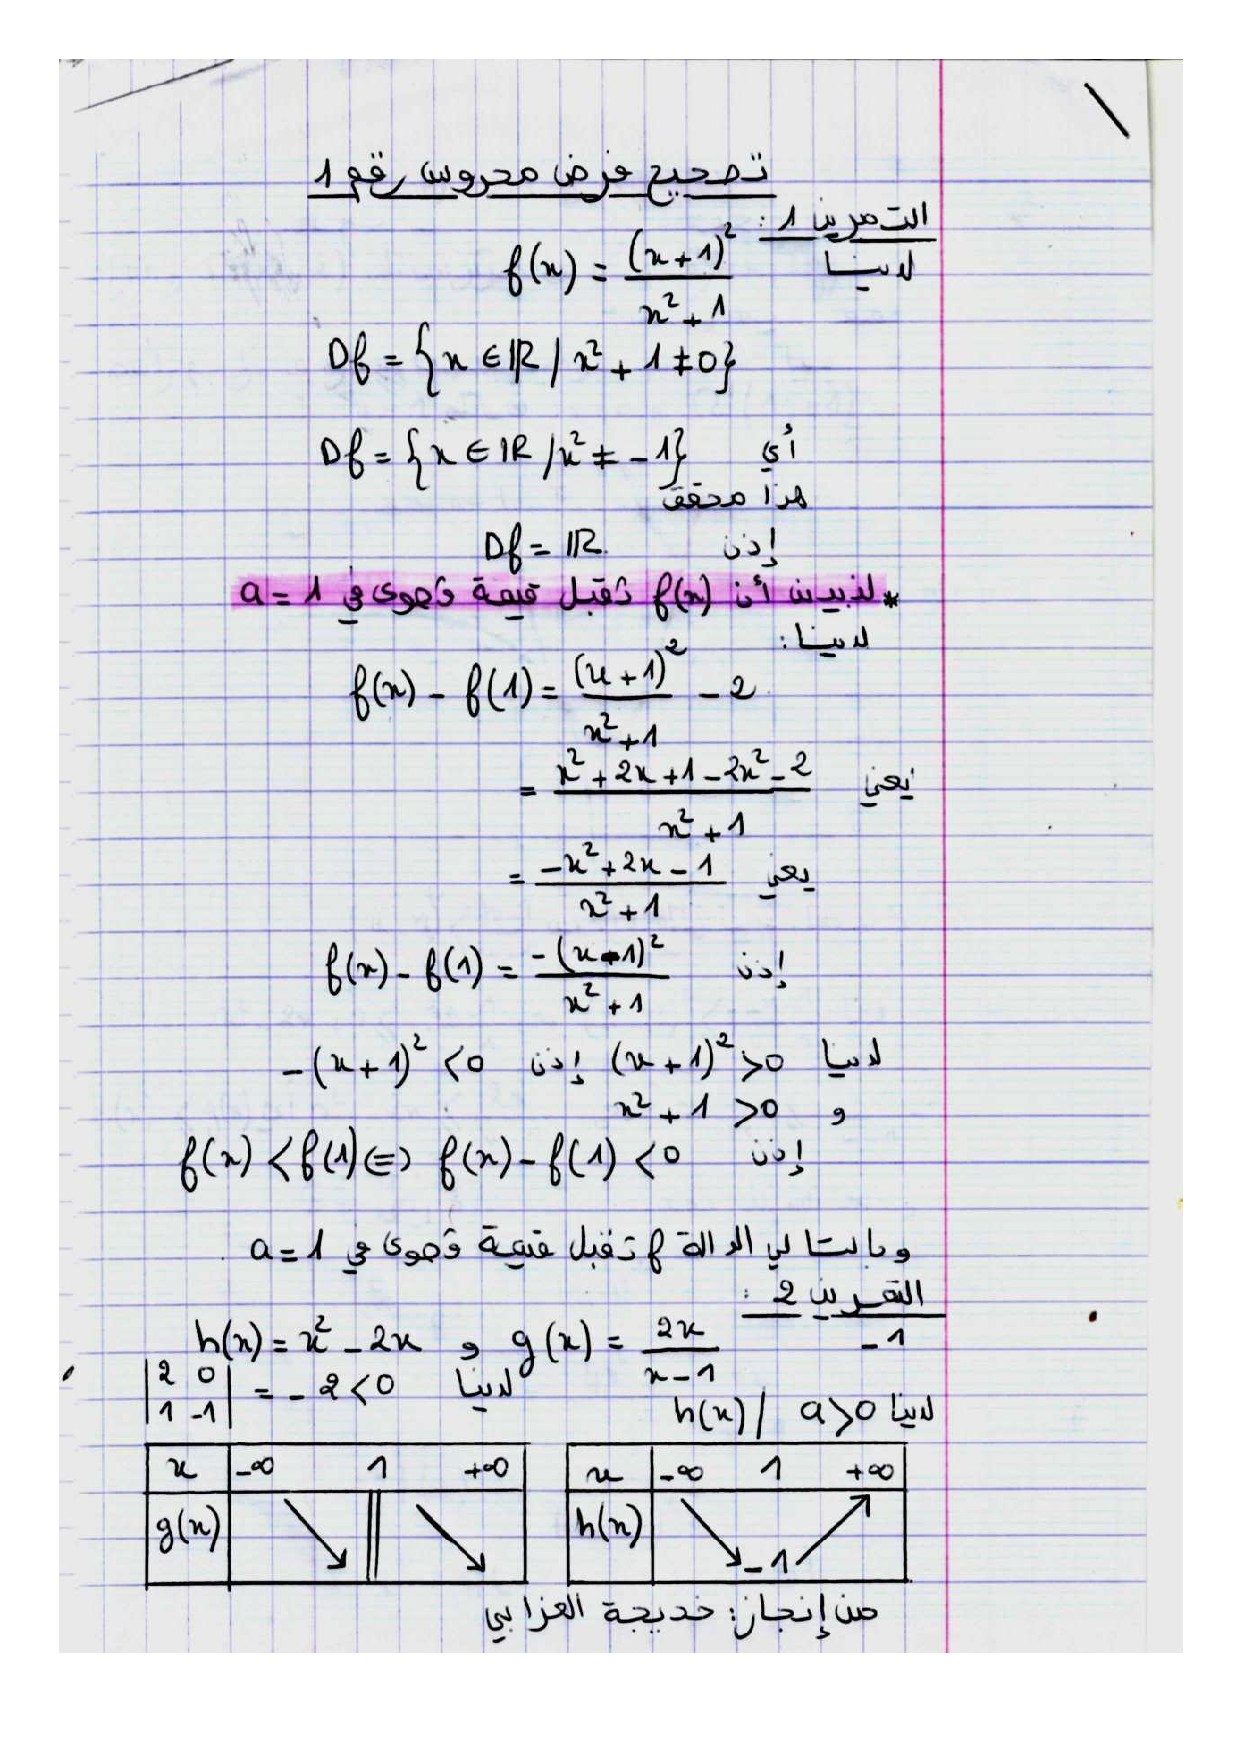 تصحيح فرض محروس رقم 1
التمرين 1 :
لدينا f(x) = (x+1)² / x²+1
Df = {x ∈ IR / x² + 1 ≠ 0}
أي Df = {x ∈ IR / x² ≠ -1}
هذا محقق
إذن Df = IR
* لنبين أن f(x) تقبل قيمة قصوى في a = 1
لدينا :
f(x) - f(1) = (x+1)² / x²+1 - 2
يعني = x² + 2x + 1 - 2x² - 2 / x² + 1
يعني = -x² + 2x - 1 / x² + 1
إذن f(x) - f(1) = -(x-1)² / x² + 1
لدينا (x+1)² > 0 إذن -(x+1)² < 0
و x² + 1 > 0
إذن f(x) - f(1) < 0 ⟺ f(x) < f(1)
وبالتالي الدالة f تقبل قيمة قصوى في a = 1
التمرين 2 :
1- g(x) = 2x / x-1 و h(x) = x² - 2x
لدينا |2 0| = -2 < 0
|1 -1|
لدينا h(x) / a > 0
x -∞ 1 +∞
g(x)
x -∞ 1 +∞
h(x) -1
من إنجاز: خديجة العزابي